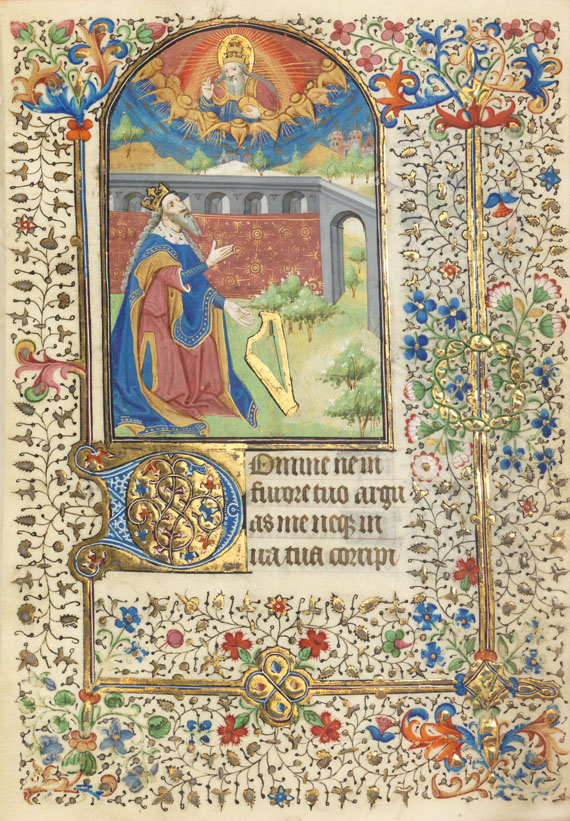 Domine ne in
furore tuo argu
as me neqꝫ in
ira tua corripi